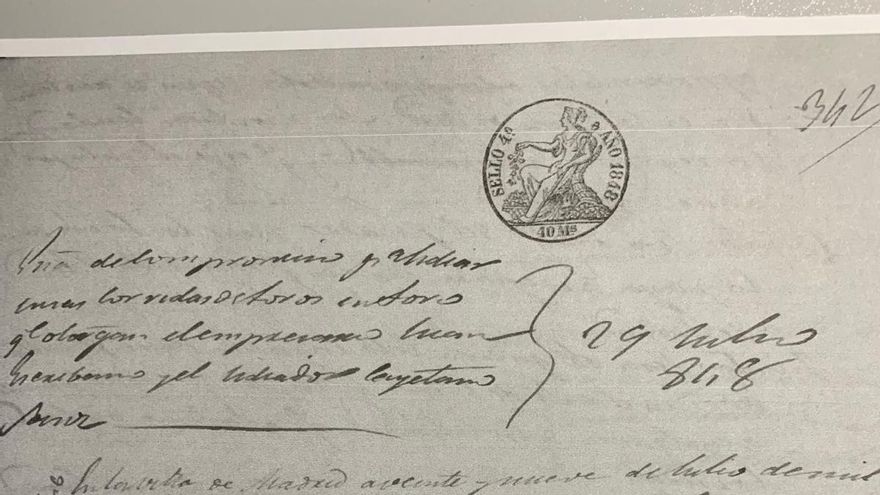 342
SELLO 4º AÑO 1848
40 Ms
de compromiso pª lidiar
unas corridas de toros en Toro
q otorgan el empresario Juan
Escribano y el lidiador Cayetano
Sanz
29 Julio
848
En la villa de Madrid a veinte y nueve de Julio de mil